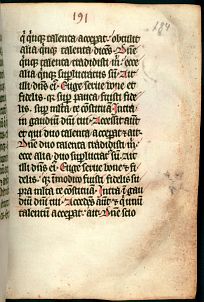 191
187
q̄ q̄nq; talenta accepat · obtulit
alia q̄nq; talenta dicēs · Dn̄e
q̄nq; talenta tradidisti m̄
ecce alia q̄nq; suplucratus sū · Ait
illi dn̄s ei · Euge serve bone et
fidelis · q; sup pauca fuisti fide
lis · sup m̄lta te cōstituā · Intra
in gaudiū dn̄i tui · Accessit aūt
et qui duo talenta accepat · ait ·
Dn̄e duo talenta tradidisti m̄
ecce alia duo suplucrat̄ sū · Ait
illi dn̄s ei · Euge serve bone et
fidelis · fuisti fidelis
supra m̄lta te cōstituā · Intra ī gau
diū dn̄i tui · Accedēs aūt et q̄ unū
talentū accepat · ait · Dn̄e scio